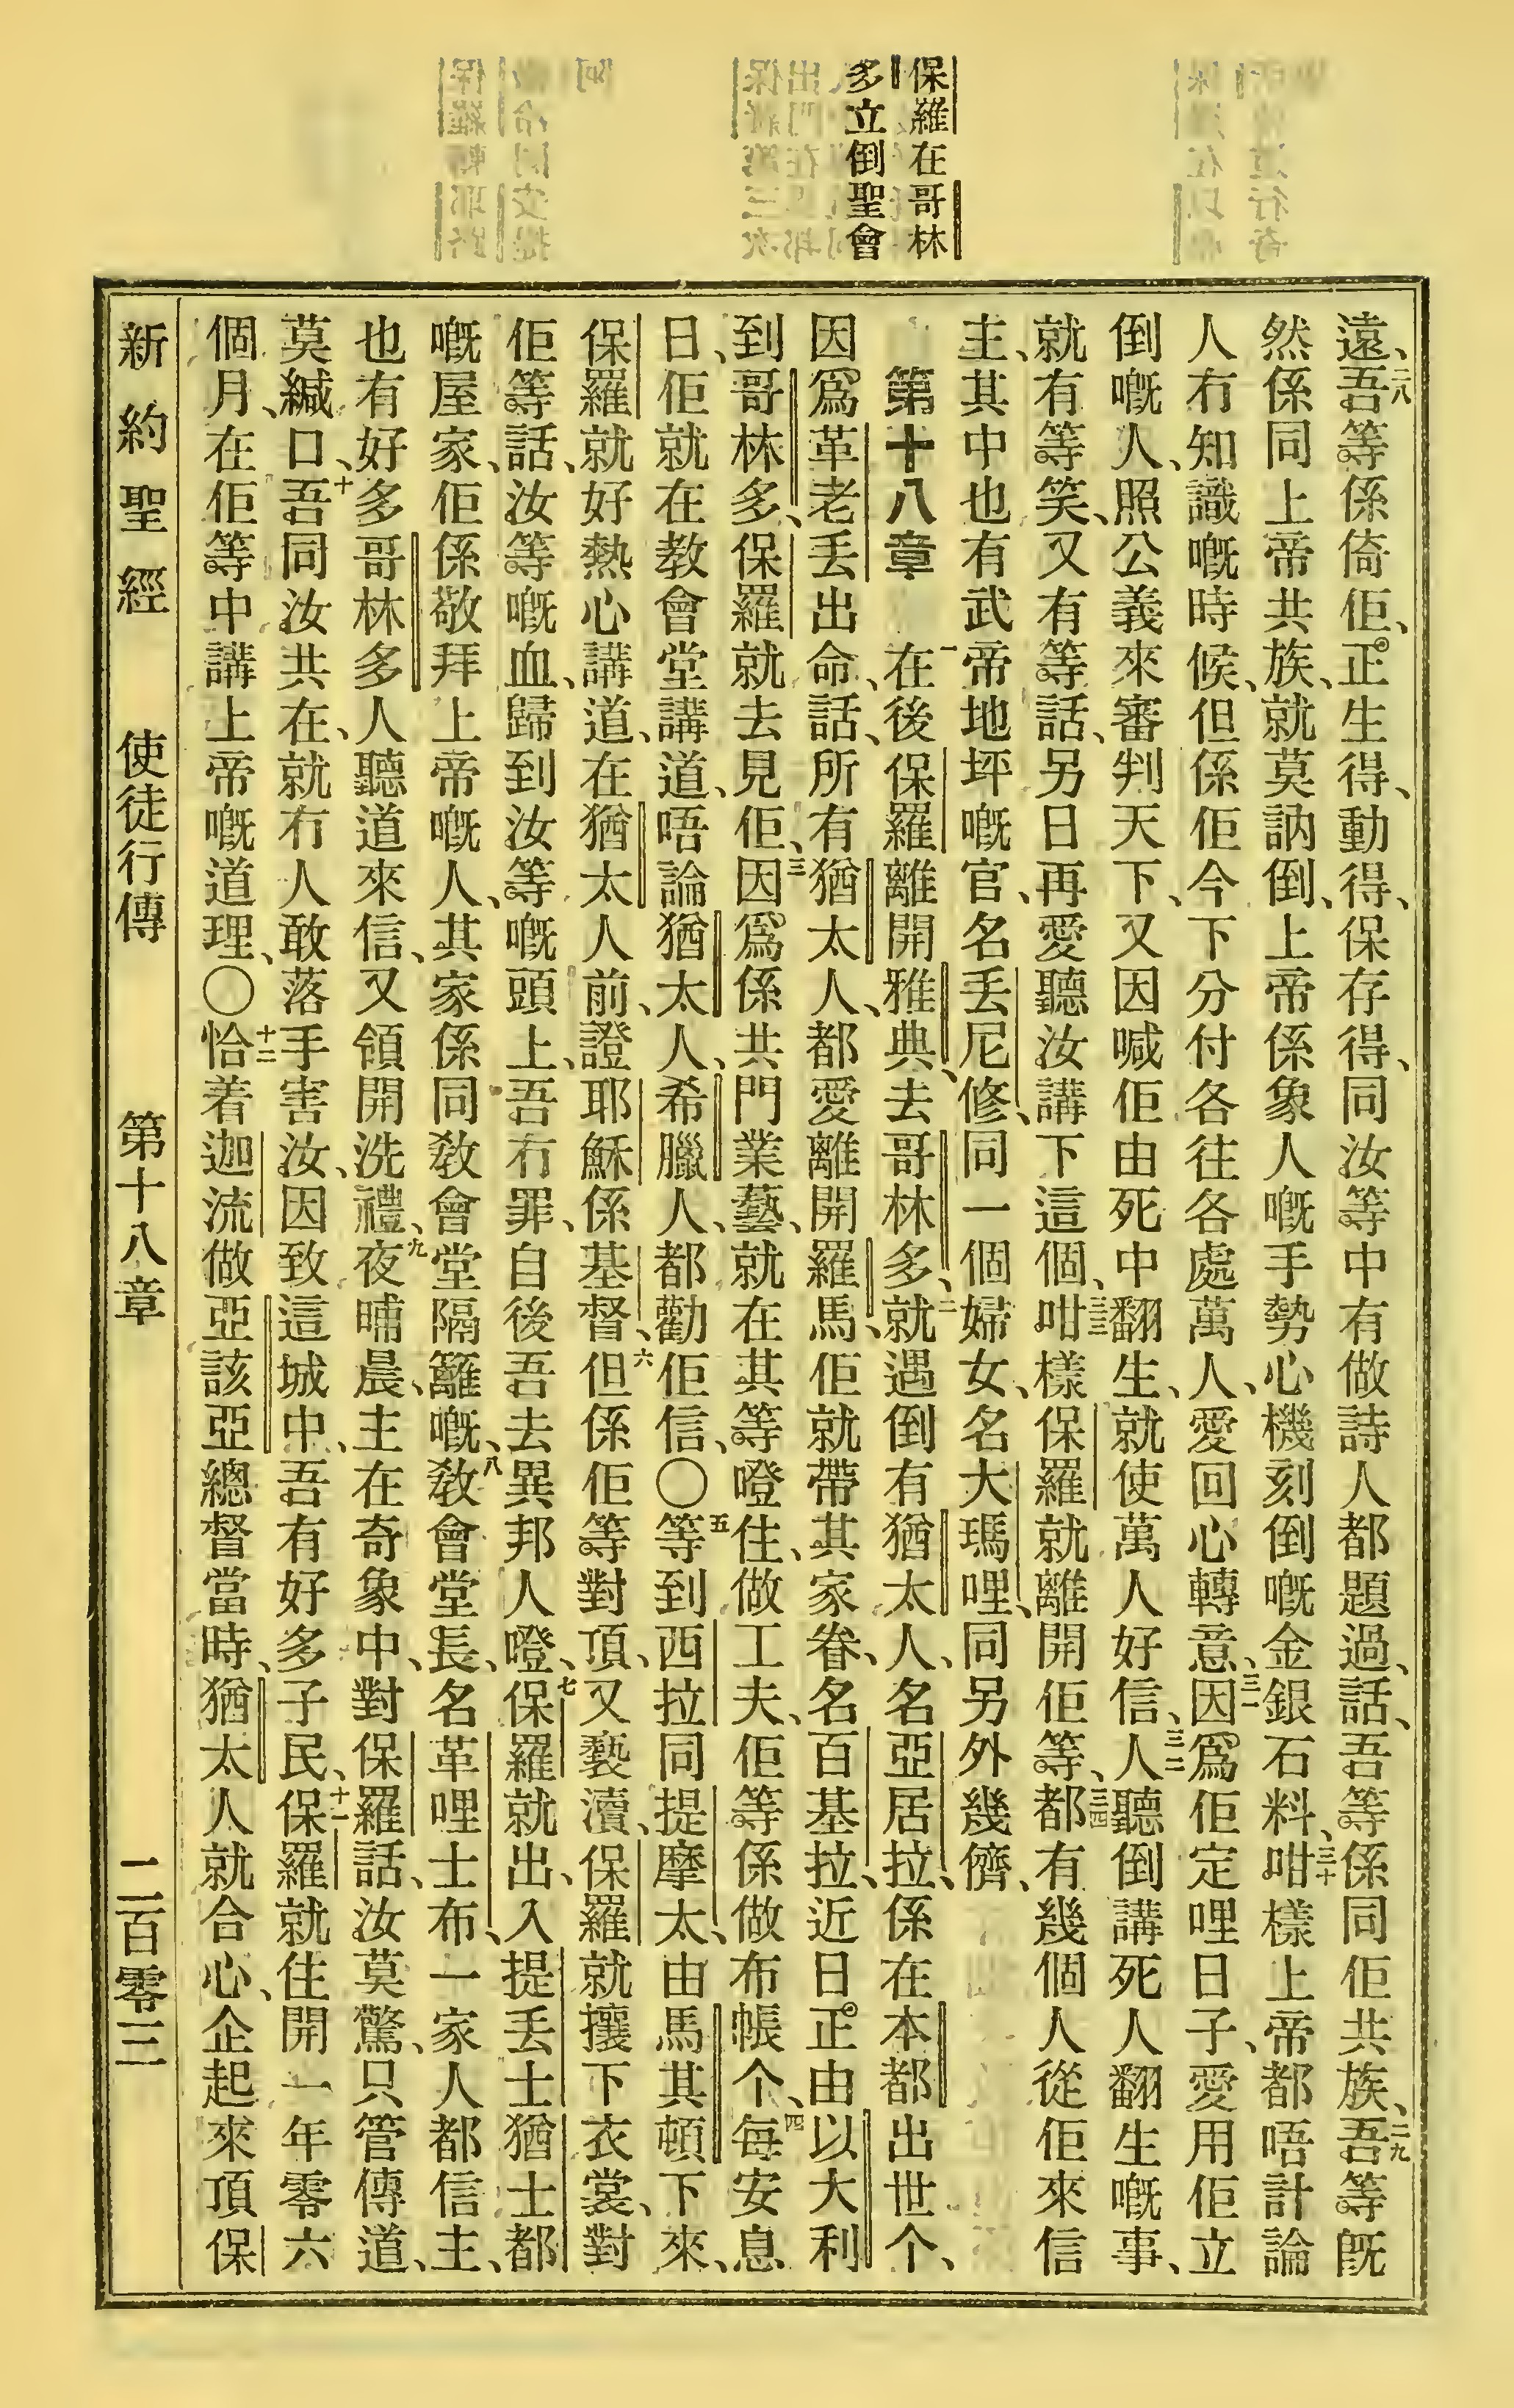 保羅在哥林
多立倒聖會
遠、二八吾等係倚佢、正生得、動得、保存得、同汝等中有做詩人都題過、話、吾等係同佢共族、二九吾等旣
然係同上帝共族、就莫訥倒、上帝係象人嘅手勢心機刻倒嘅金銀石料、三十咁樣上帝都唔計論
人冇知識嘅時候、但係佢今下分付各往各處萬人、愛回心轉意、三一因爲佢定哩日子、愛用佢立
倒嘅人、照公義來審判天下、又因喊佢由死中翻生、就使萬人好信、三二人聽倒講死人翻生嘅事、
就有等笑、又有等話、另日再愛聽汝講下這個、三三咁樣保羅就離開佢等、三四都有幾個人從佢來信
主、其中也有武帝地坪嘅官、名丢尼修、同一個婦女、名大瑪哩、同另外幾儕、
第十八章 一在後保羅離開雅典、去哥林多、二就遇倒有猶太人、名亞居拉、係在本都出世个、
因爲革老丢出命、話、所有猶太人、都愛離開羅馬、佢就帶其家眷、名百基拉、近日正由以大利
到哥林多、保羅就去見佢、三因爲係共門業藝、就在其等嶝住、做工夫、佢等係做布帳个、四每安息
日、佢就在教會堂講道、唔論猶太人、希臘人、都勸佢信、〇五等到西拉同提摩太、由馬其頓下來、
保羅就好熱心講道、在猶太人前、證耶穌係基督、六但係佢等對頂、又褻瀆、保羅就攘下衣裳、對
佢等話、汝等嘅血、歸到汝等嘅頭上、吾冇罪、自後吾去異邦人嶝、七保羅就出、入提丢士猶士都
嘅屋家、佢係敬拜上帝嘅人、其家係同敎會堂隔籬嘅、八敎會堂長、名革哩士布、一家人都信主、
也有好多哥林多人聽道來信、又領開洗禮、九夜晡晨、主在奇象中、對保羅話、汝莫驚、只管傳道、
莫緘口、十吾同汝共在、就冇人敢落手害汝、因致這城中、吾有好多子民、十一保羅就住開一年零六
個月、在佢等中講上帝嘅道理、〇十二恰着迦流做亞該亞總督當時、猶太人就合心、企起來頂保
新約聖經 使徒行傳 第十八章 二百零三